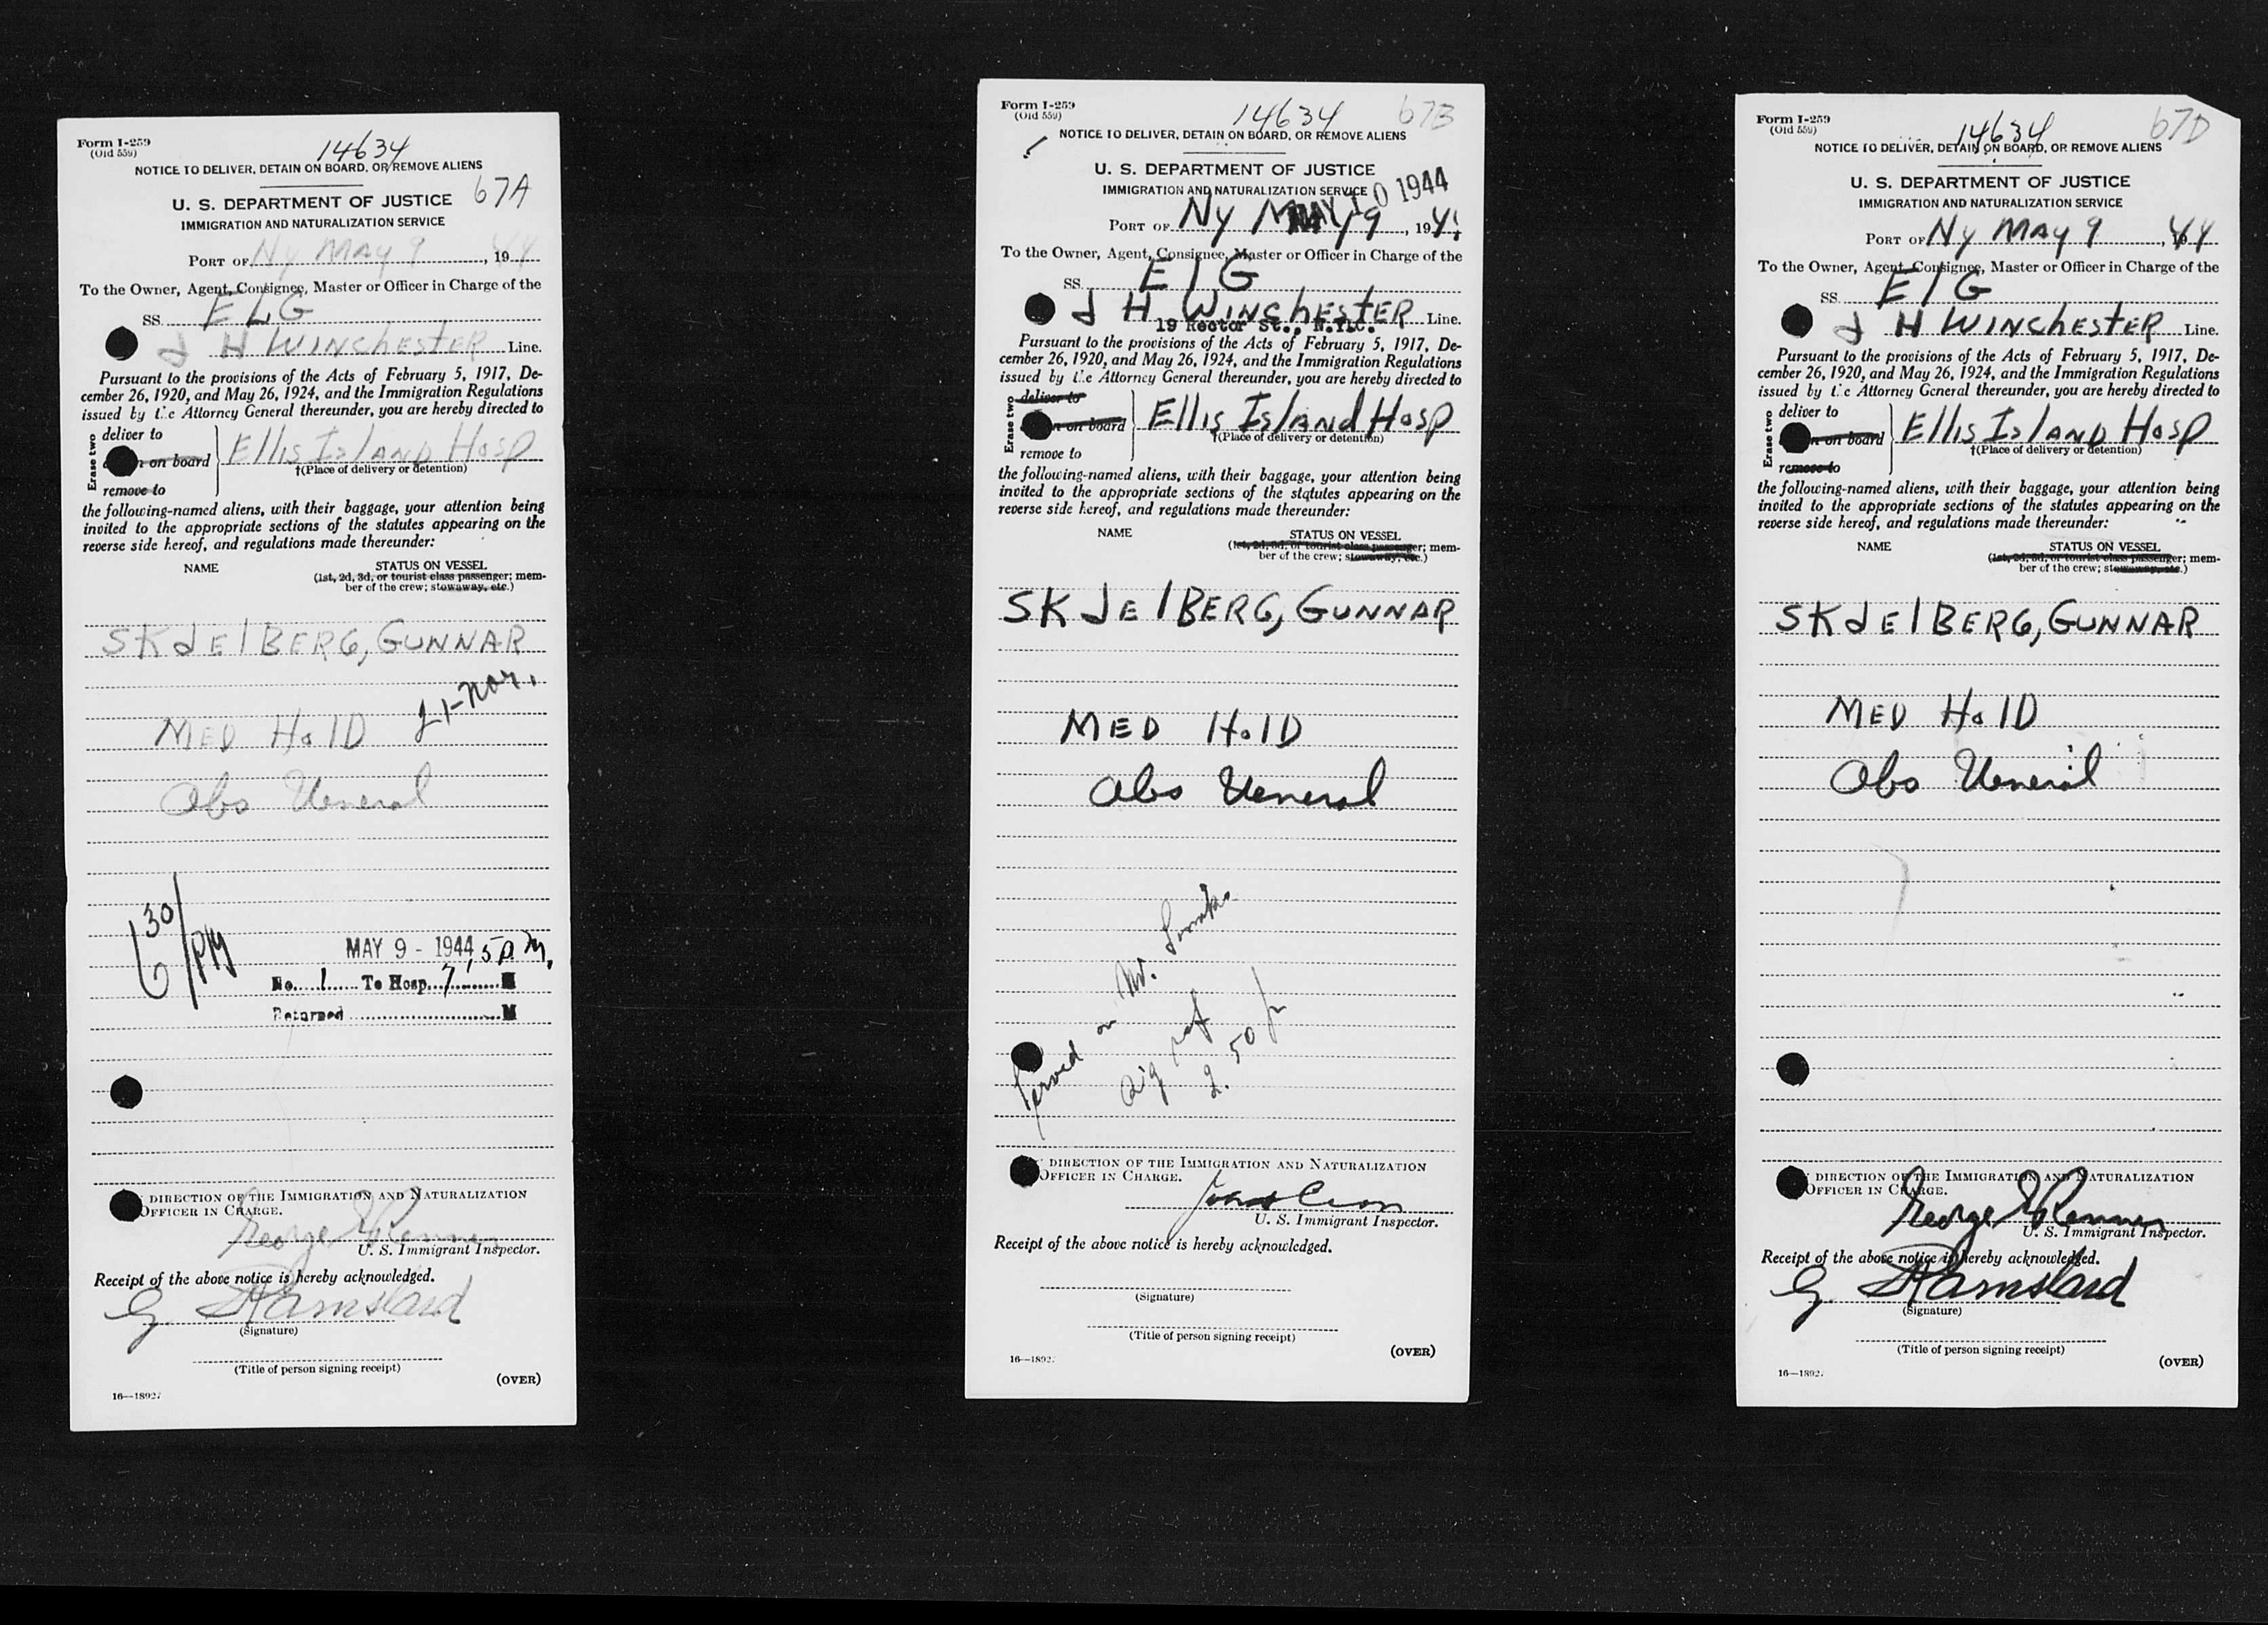 Form I-259
(Old 559)
14634
NOTICE TO DELIVER, DETAIN ON BOARD, OR REMOVE ALIENS
67A
U. S. DEPARTMENT OF JUSTICE
IMMIGRATION AND NATURALIZATION SERVICE
PORT OF NY MAY 9, 1944
To the Owner, Agent, Consignee, Master or Officer in Charge of the
SS ELG
J H WINCHESTER Line.
Pursuant to the provisions of the Acts of February 5, 1917, De-
cember 26, 1920, and May 26, 1924, and the Immigration Regulations
issued by the Attorney General thereunder, you are hereby directed to
Erase two
deliver to
on board
remove to
Ellis Island Hosp
†(Place of delivery or detention)
the following-named aliens, with their baggage, your attention being
invited to the appropriate sections of the statutes appearing on the
reverse side hereof, and regulations made thereunder:
NAME
STATUS ON VESSEL
(1st, 2d, 3d, or tourist class passenger; mem-
ber of the crew; stowaway, etc.)
SKJElBERG, GUNNAR
MED HOlD
L1-Nor.
Obs Veneral
6 30/PM
MAY 9 - 1944
No. 1 To Hosp. 7 15 P M.
Returned M
DIRECTION OF THE IMMIGRATION AND NATURALIZATION
OFFICER IN CHARGE.
George Renner
U. S. Immigrant Inspector.
Receipt of the above notice is hereby acknowledged.
G. Ramslard
(Signature)
(Title of person signing receipt)
(OVER)
Form I-259
(Old 559)
14634
67B
NOTICE TO DELIVER, DETAIN ON BOARD, OR REMOVE ALIENS
U. S. DEPARTMENT OF JUSTICE
IMMIGRATION AND NATURALIZATION SERVICE
MAY 10 1944
PORT OF NY MAY 9, 1944
To the Owner, Agent, Consignee, Master or Officer in Charge of the
SS ElG
J H WINChESTER Line.
19 Rector St., N.Y.C.
Pursuant to the provisions of the Acts of February 5, 1917, De-
cember 26, 1920, and May 26, 1924, and the Immigration Regulations
issued by the Attorney General thereunder, you are hereby directed to
Erase two
deliver to
on board
remove to
Ellis Island Hosp
†(Place of delivery or detention)
the following-named aliens, with their baggage, your attention being
invited to the appropriate sections of the statutes appearing on the
reverse side hereof, and regulations made thereunder:
NAME
STATUS ON VESSEL
(1st, 2d, 3d, or tourist class passenger; mem-
ber of the crew; stowaway, etc.)
SKJElBERG, GUNNAR
MED HOlD
Obs Veneral
Served on Mr.
2.50 p
DIRECTION OF THE IMMIGRATION AND NATURALIZATION
OFFICER IN CHARGE.
U. S. Immigrant Inspector.
Receipt of the above notice is hereby acknowledged.
(Signature)
(Title of person signing receipt)
(OVER)
Form I-259
(Old 559)
14634
67D
NOTICE TO DELIVER, DETAIN ON BOARD, OR REMOVE ALIENS
U. S. DEPARTMENT OF JUSTICE
IMMIGRATION AND NATURALIZATION SERVICE
PORT OF NY MAY 9, 1944
To the Owner, Agent, Consignee, Master or Officer in Charge of the
SS ElG
J H WINChESTER Line.
Pursuant to the provisions of the Acts of February 5, 1917, De-
cember 26, 1920, and May 26, 1924, and the Immigration Regulations
issued by the Attorney General thereunder, you are hereby directed to
Erase two
deliver to
on board
remove to
Ellis Island Hosp
†(Place of delivery or detention)
the following-named aliens, with their baggage, your attention being
invited to the appropriate sections of the statutes appearing on the
reverse side hereof, and regulations made thereunder:
NAME
STATUS ON VESSEL
(1st, 2d, 3d, or tourist class passenger; mem-
ber of the crew; stowaway, etc.)
SKJElBERG, GUNNAR
MED HOlD
Obs Veneral
DIRECTION OF THE IMMIGRATION AND NATURALIZATION
OFFICER IN CHARGE.
George Renner
U. S. Immigrant Inspector.
Receipt of the above notice is hereby acknowledged.
G. Ramslard
(Signature)
(Title of person signing receipt)
(OVER)